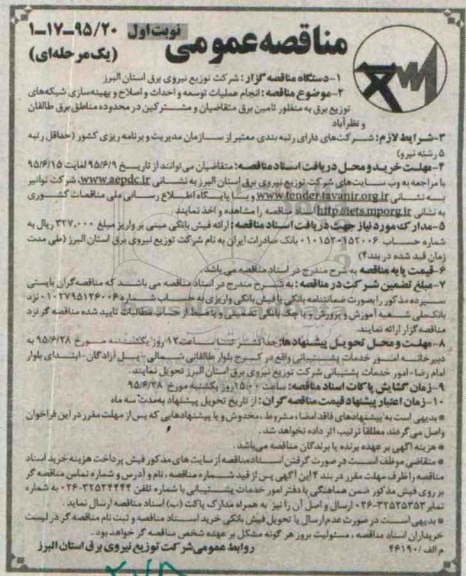 مناقصه عمومی
نوبت اول
۹۵/۲۰-۱۷-۱
(یک مرحله‌ای)
۱-دستگاه مناقصه گزار: شرکت توزیع نیروی برق استان البرز
۲-موضوع مناقصه: انجام عملیات توسعه و احداث و اصلاح و بهینه‌سازی شبکه‌های
توزیع برق به منظور تامین برق متقاضیان و مشترکین در محدوده مناطق برق طالقان
و نظرآباد
۳-شرایط لازم: شرکت‌های دارای رتبه بندی معتبر از سازمان مدیریت و برنامه ریزی کشور (حداقل رتبه
۵ رشته نیرو)
۴-مهلت خرید و محل دریافت اسناد مناقصه: متقاضیان می‌توانند از تاریخ ۹۵/۶/۹ لغایت ۹۵/۶/۱۵
با مراجعه به وب سایت‌های شرکت توزیع نیروی برق استان البرز به نشانی www.aepdc.ir، شرکت توانیر
به نشانی www.tender.tavanir.org.ir و یا پایگاه اطلاع رسانی ملی مناقصات کشوری
به نشانی http://iets.mporg.ir اسناد مناقصه را مشاهده و اخذ نمایند
۵-مدارک مورد نیاز جهت دریافت اسناد مناقصه: ارائه فیش بانکی مبنی بر واریز مبلغ ۳۲۷,۰۰۰ ریال به
شماره حساب ۰۱۰۱۵۲۰۱۵۲۰۰۶ بانک صادرات ایران به نام شرکت توزیع نیروی برق استان البرز (طی مدت
زمان قید شده در بند ۴)
۶-قیمت پایه مناقصه به شرح مندرج در اسناد مناقصه می باشد
۷-مبلغ تضمین شرکت در مناقصه: به شرح مندرج در اسناد مناقصه می باشند که مناقصه‌گران بایستی
سپرده مذکور را بصورت ضمانتنامه بانکی یا فیش بانکی واریزی به حساب شماره ۰۱۰۲۷۹۵۱۲۶۰۰۶ نزد
بانک ملی شعبه آموزش و پرورش و یا چک بانکی تضمینی و یا خط از حساب مطالبات تایید شده مناقصه گر نزد
مناقصه گزار ارائه نمایند.
۸-مهلت و محل تحویل پیشنهادها: حداکثر تا ساعت ۱۳ روز یکشنبه مورخ ۹۵/۶/۲۸ به
دبیرخانه امور خدمات پشتیبانی واقع در کرج بلوار طالقانی شمالی-پل آزادگان-ابتدای بلوار
امام رضا-امور خدمات پشتیبانی شرکت توزیع نیروی برق استان البرز تحویل نمایند.
۹-زمان گشایش پاکات اسناد مناقصه: ساعت ۱۵:۰۰ روز یکشنبه مورخ ۹۵/۶/۲۸
۱۰-زمان اعتبار پیشنهاد قیمت مناقصه گران: از تاریخ تحویل پیشنهاد به مدت سه ماه
* بدیهی است به پیشنهادهای فاقد امضاء، مشروط، مخدوش و یا پیشنهادهایی که پس از مهلت مقرر در این فراخوان
واصل می گردند مطلقا ترتیب اثر داده نخواهد شد.
* هزینه آگهی بر عهده برنده یا برندگان مناقصه می‌باشد.
* متقاضی موظف است در صورت گرفتن اسناد مناقصه از سایت های مذکور فیش پرداخت هزینه خرید اسناد
مناقصه را ظرف مهلت مقرر در بند ۴ این آگهی پس از قید شماره مناقصه، نام و آدرس و شماره تماس مناقصه گر
بر روی فیش مذکور ضمن هماهنگی با دفتر امور خدمات پشتیبانی با شماره تلفن ۳۲۵۲۴۴۴۴-۰۲۶ به شماره
نمابر ۳۲۵۲۵۳۵۳-۰۲۶ ارسال و اصل آن را نیز به همراه مدارک پاکت (ب) اسناد مناقصه ارسال نماید.
* بدیهی است در صورت عدم ارسال یا تحویل فیش بانکی خرید اسناد مناقصه و ثبت نام مناقصه گر در لیست
خریداران اسناد مناقصه، مسئولیت بروز هر گونه مشکل بر عهده شخص مناقصه گر خواهد بود.
م الف/۴۶۱۹۰
روابط عمومی شرکت توزیع نیروی برق استان البرز